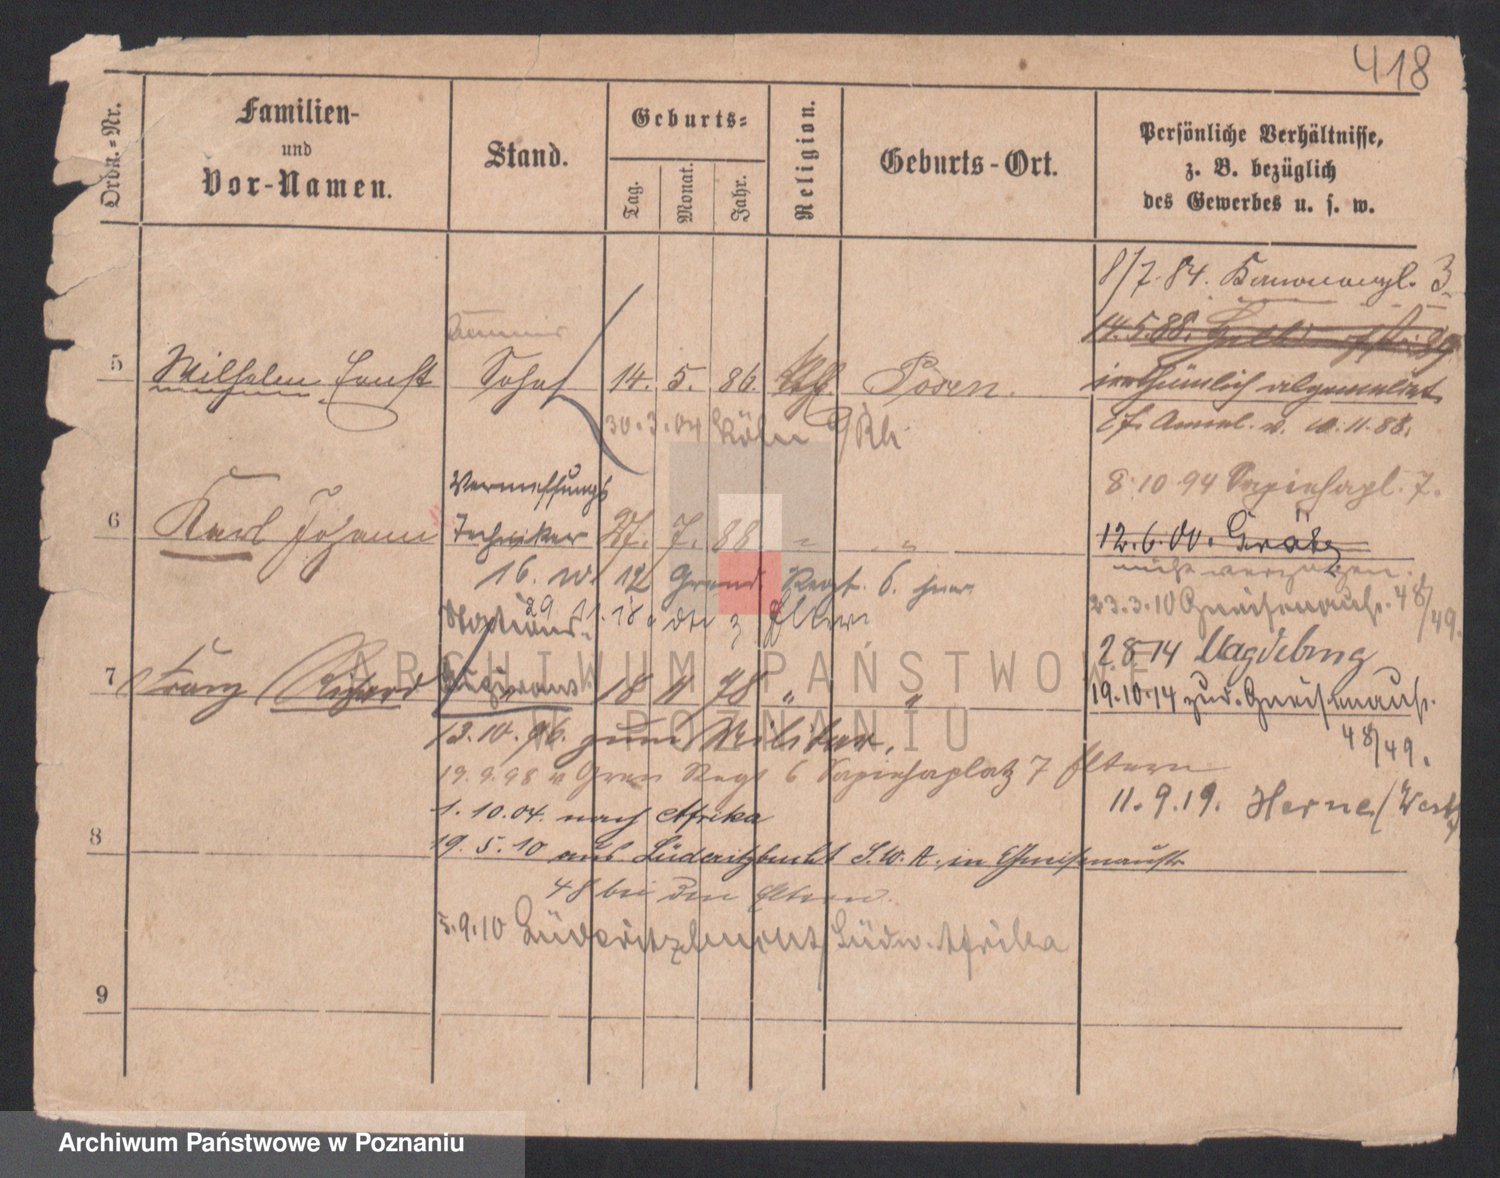 418
Ordn.=Nr.
Familien-
und
Vor-Namen.
Stand.
Geburts=
Tag.
Monat.
Jahr.
Religion.
Geburts-Ort.
Persönliche Verhältnisse,
z. B. bezüglich
des Gewerbes u. s. w.
8/7.84. Kanonenpl. 3
14.5.88.
5 Wilhelm Ernst Sohn 14. 5. 86. Posen.
irrthümlich abgemeldet
cf. Anmel. v. 10.11.88.
30.3.04 Köln a/Rh
8.10.94 Sapiehapl. 7.
Vermessungs
6 Karl Johann Techniker 27. 7. 88 " "
12.6.00. Grätz
nicht verzogen.
16. 12 Grend. Regt. 6. hier
23.3.10 Gneisenaustr. 48/49.
29. 11. 18. Eltern
2.8.14 Magdeburg
7 Franz Richard 18 11 78 " "
19.10.14 zur. Gneisenaustr.
48/49.
13.10.96. zum Militär.
19.9.98 v Gren Regt 6 Sapiehaplatz 7 Eltern
11.9.19. Herne (Westf
1.10.04. nach Afrika
8
19.5.10 aus Lüderitzbucht S.W.A. in Gneisenaustr
48 bei den Eltern.
5.9.10 Lüderitzbucht Südw. Afrika
9
ARCHIWUM PAŃSTWOWE
W POZNANIU
Archiwum Państwowe w Poznaniu